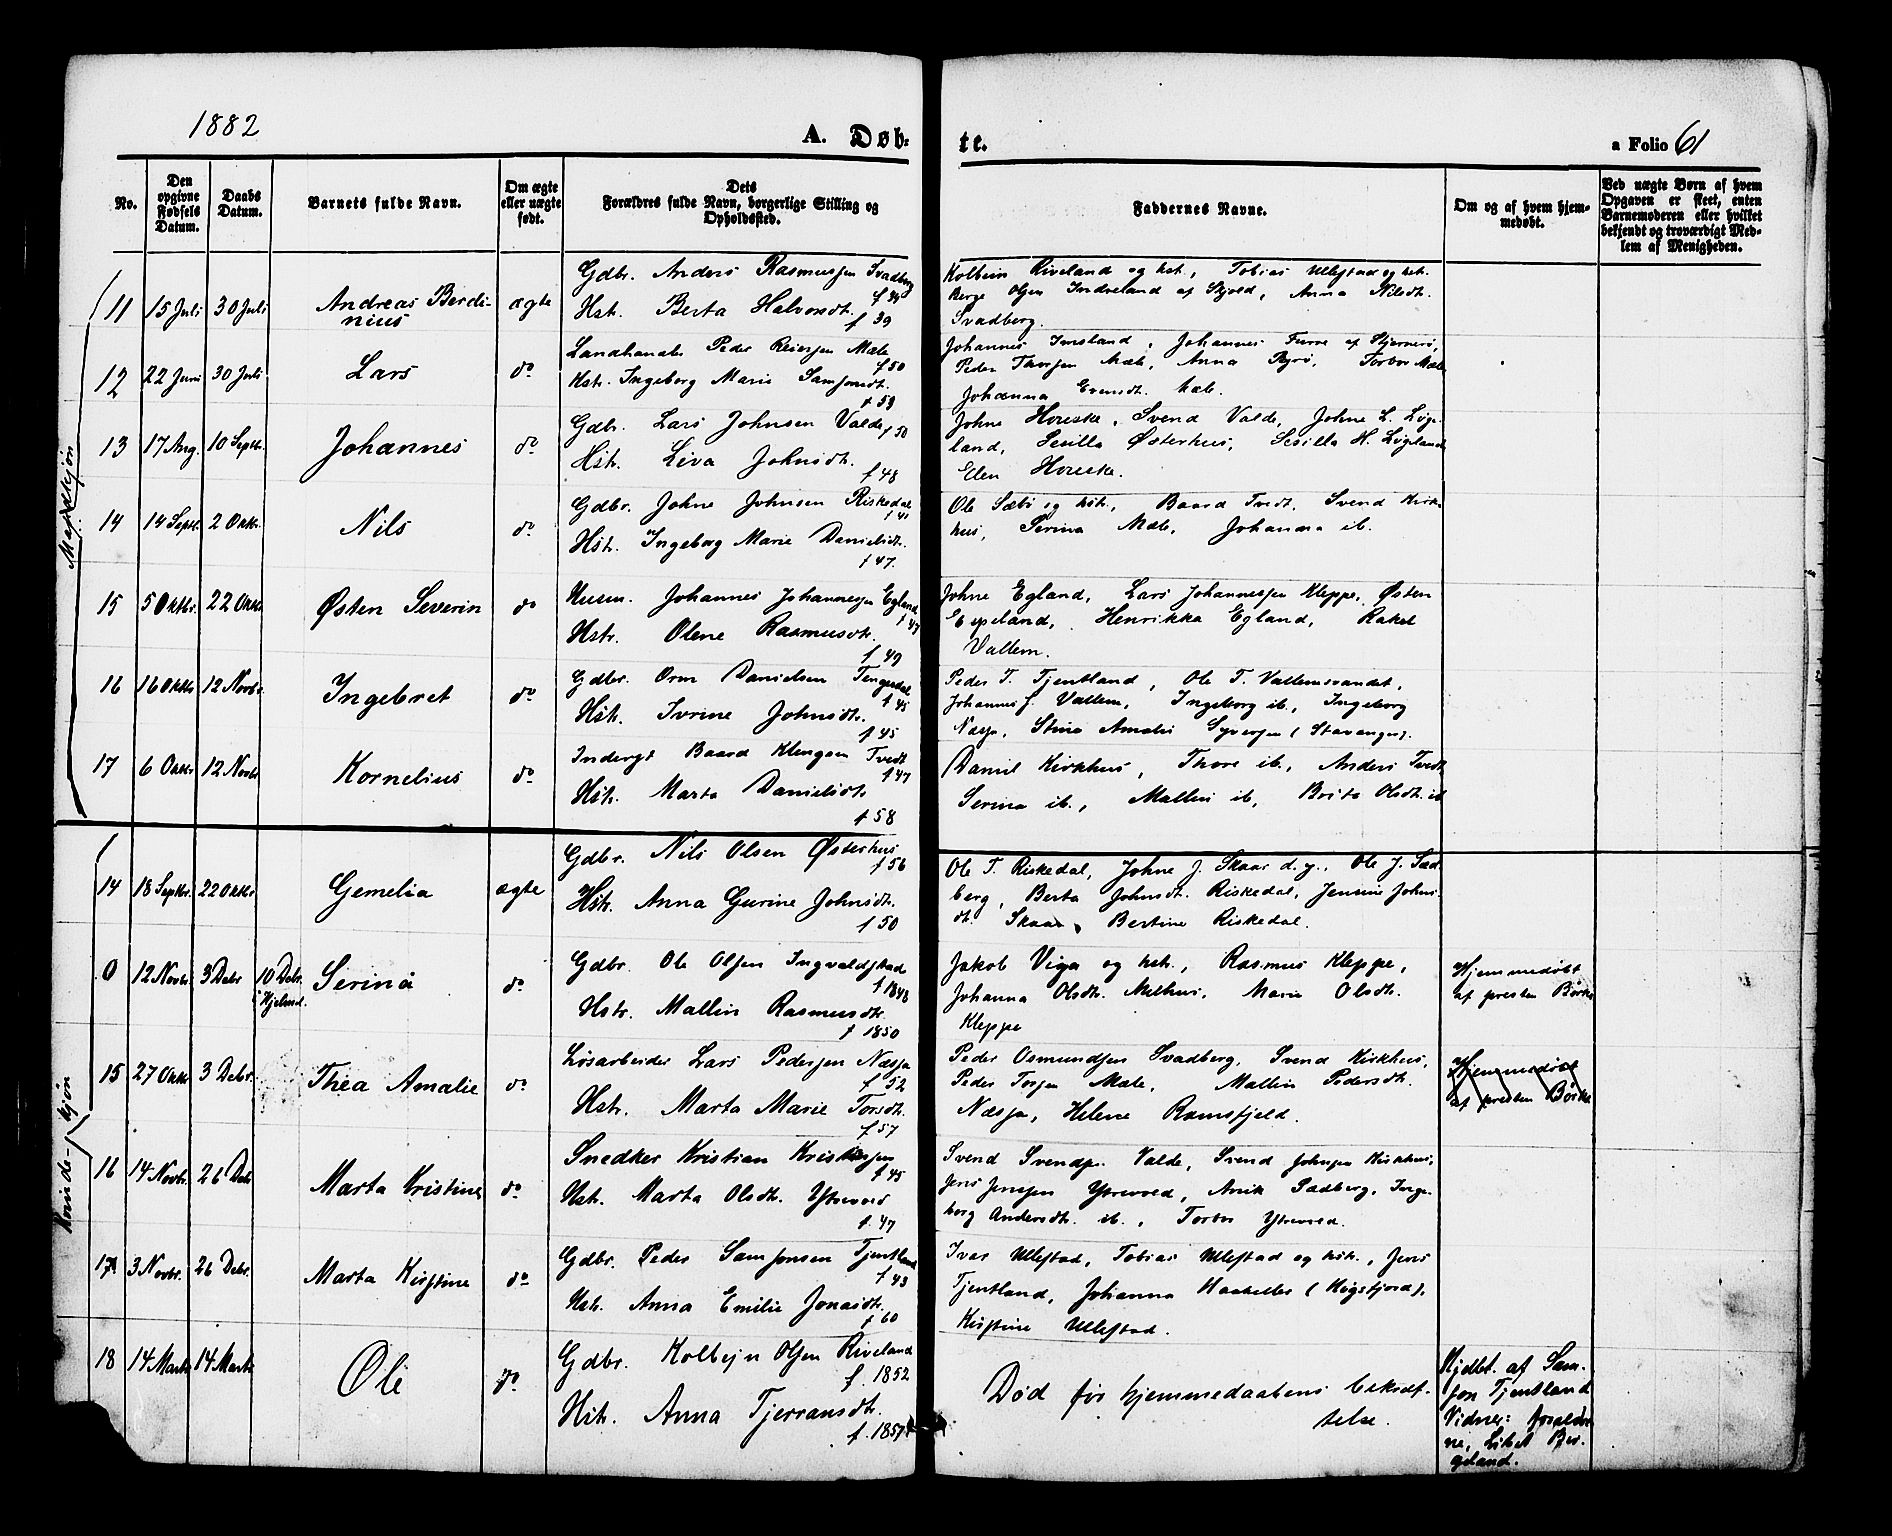 1882
A. Døb-
te.
a Folio 61
No.
Den opgivne Fødsels Datum.
Daabs Datum.
Barnets fulde Navn.
Om ægte eller uægte født.
Dets Forældres fulde Navn, borgerlige Stilling og Opholdssted.
Faddernes Navne.
Om og af hvem hjemmedøbt.
Ved uægte Børn af hvem Opgaven er skeet, enten Barnemoderen eller hvilket bekjendt og troværdigt Medlem af Menigheden.
Mandkjøn
11 15 Juli 30 Juli Andreas Berdi-
nius
ægte
Gdbr. Anders Rasmussen Svadberg
Hst. Berta Halvorsdt. f 39
Kolbein Riveland og hst., Tobias Ullestad og hst.
Berge Olsen Indreland af Skjold, Anna Nilsdt.
Svadberg.
12 22 Juni 30 Juli Lars do
Landhandler Peder Reiersen Mæle f 50
Hst. Ingeborg Marie Samsonsdt. f 59
Johannes Imsland, Johannes Furre af Stjernerø,
Peder Thorsen Mæle, Anna Byrø, Torbor Mæle
Johanna Evensdt. Mæle.
13 17 Aug. 10 Septbr. Johannes do
Gdbr. Lars Johnsen Valde f 50
Hst. Liva Johnsdt. f 48
Johne Hoveske, Svend Valde, Johne L. Løge-
land, Sesilla Østerhus, Sesilla H. Løgeland
Elen Hoveske.
14 14 Septbr. 2 Oktbr. Nils do
Gdbr. Johne Johnsen Riskedal f 41
Hst. Ingeborg Marie Danielsdt. f 47.
Ole Sæbø og hst., Baard Tvedt, Svend Kirk-
hus, Serina Mæle, Johanna ib.
15 5 Oktbr. 22 Oktbr Østen Severin do
Husm. Johannes Johannessen Egland f 47
Hst. Olene Rasmusdt. f 49
Johne Egland, Lars Johannessen Kleppe, Østen
Espeland, Henrikka Egland, Rakel
Vallem.
16 16 Oktbr 12 Novbr Ingebret do
Gdbr. Orm Danielsen Tengesdal f 45
Hst. Ivrine Johnsdt. f 45
Peder T. Tjentland, Ole T. Vallemsvandet,
Johannes J. Vallem, Ingeborg ib., Ingeborg
Næsja, Stina Amalie Syversen (Stavanger).
17 6 Oktbr 12 Novbr Kornelius do
Inderst Baard Klengsen Tvedt f 47
Hst. Marta Danielsdt. f 58
Daniel Kirkhus, Thore ib., Anders Tvedt
Serina ib., Mallin ib, Brita Olsdt. ib
Kvinde-kjøn
14 18 Septbr. 22 Oktbr Gemelia ægte
Gdbr. Nils Olsen Østerhus f 56
Hst. Anna Gurine Johnsdt. f 50
Ole T. Riskedal, Johne J. Skaar d.y., Ole J. Sæd-
berg, Berta Johnsdt. Riskedal, Jensine Johns-
dt. Skaar, Bertine Riskedal.
0 12 Novbr. 3 Debr 10 Debr. i Hjelmd. Serina do
Gdbr. Ole Olsen Ingvaldstad f 1848
Hst. Mallin Rasmusdt. f 1850
Jakob Viga og hst., Rasmus Kleppe,
Johanna Olsdt. Melhus, Marie Olsdt.
Kleppe
Hjemmedøbt
af presten Børke
15 27 Oktbr 3 Debr. Thea Amalie do
Løsarbeider Lars Pedersen Næsja f 52
Hst. Marta Marie Torsdt. f 57
Peder Osmundsen Svadberg, Svend Kirkhus,
Peder Torsen Mæle, Mallin Pedersdt.
Næsja, Helene Ramsfjeld.
Hjemmedøbt
af presten Børke
16 14 Novbr. 26 Debr Marta Kristine do
Snedker Kristian Kristensen f 45
Hst. Marta Olsdt. Ytrevord f. 47
Svend Svendsen Valde, Svend Johnsen Kirkhus,
Jens Jenssen Ytrevord, Anik Sædberg, Inge-
borg Andersdt. ib., Torbor Ytrevord.
17 3 Novbr. 26 Debr. Marta Kistine do
Gdbr. Peder Samsonsen Tjentland f 43
Hst. Anna Emilie Jonasdt. f 60
Ivar Ullestad, Tobias Ullestad og hst., Jens
Tjentland, Johanna Haahelles (Høgsfjord),
Kistine Ullestad.
18 14 Marts 14 Marts Oli do
Gdbr. Kolbejn Olsen Riveland f. 1852
Hst. Anna Tjerransdt. f. 1857
Død før hjemmedaabens bekræf-
telse.
Hjdbt. af Sam-
son Tjentland
Vidner: foraldre-
ne, Lisbet Ber-
geland.